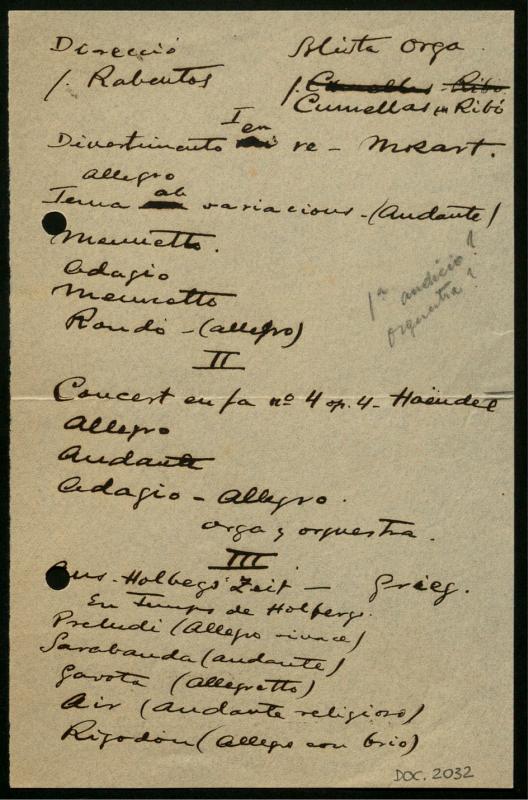 Direcció Solista Orga
J. Rabentos J. Cumellas Ribó
Cumellas Ribó
I
Divertimento en re - Mozart.
allegro
Tema ab variacions - (Andante)
Menuetto.
Adagio
Menuetto
Rondó - (allegro)
1ª audició?
orquestra?
II
Concert en fa nº 4 op. 4 - Haëndel
Allegro
Andante
Adagio - Allegro.
orga y orquestra.
III
Aus - Holbegs Zeit - Grieg.
En Temps de Holberg.
Preludi (Allegro vivace)
Sarabanda (andante)
Gavota (Allegretto)
Air (Andante religioso)
Rigodon (Allegro con brio)
DOC. 2032